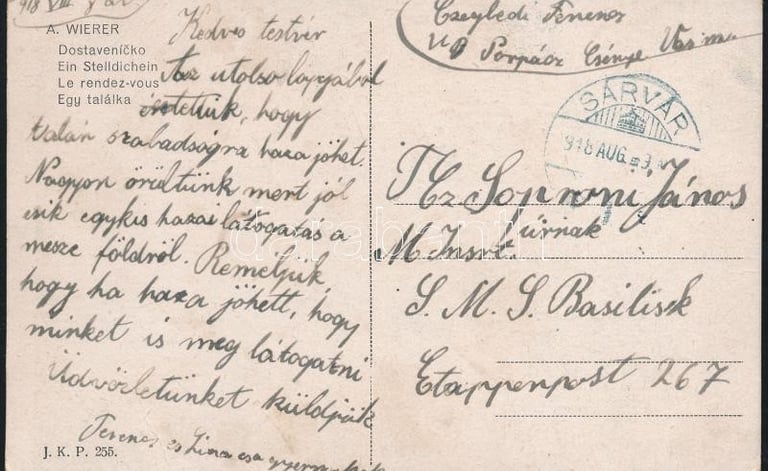 918 VIII
A. WIERER
Dostaveníčko
Ein Stelldichein
Le rendez-vous
Egy találka
Kedves testvér
Az utolso lapjából
értetük, hogy
talán szabadságra haza jöhet.
Nagyon örültünk mert jól
esik egykis hazai látogatás a
messze földről. Reméljük
hogy ha haza jöhett, hogy
minket is meg látogatni
Üdvözletünket küldjük
Ferenc és Lina
J. K. P. 255.
Czeglédi Ferencz
Porpácz Csénye Vas m.
SÁRVÁR
918 AUG. 9.
Nz Soproni János
úrnak
M. Inst.
S. M. S. Basilisk
Etappenpost 267
darabanth